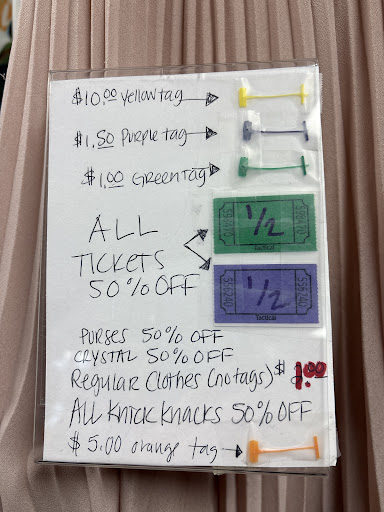 $10.00 Yellow tag
$1.50 Purple tag
$1.00 Green Tag
ALL
TICKETS
50% OFF
1/2
Tactical
1/2
Tactical
PURSES 50% OFF
CRYSTAL 50% OFF
Regular Clothes (no tags) $1.00
ALL KNICK KNACKS 50% OFF
$5.00 orange tag